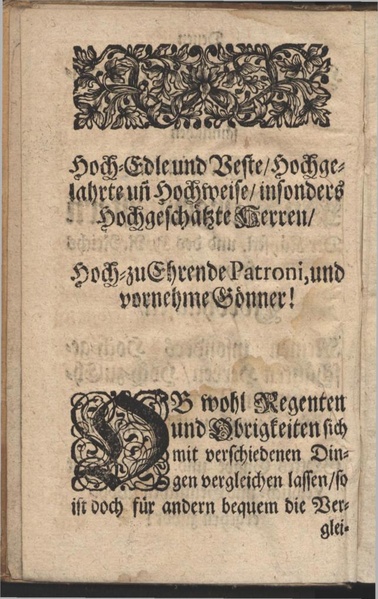 Hoch-Edle und Veste/ Hochge-
lahrte uñ Hochweise/ insonders
Hochgeschätzte Herren/
Hoch-zu Ehrende Patroni, und
vornehme Gönner!
OB wohl Regenten
und Obrigkeiten sich
mit verschiedenen Din-
gen vergleichen lassen/ so
ist doch für andern bequem die Ver-
glei-